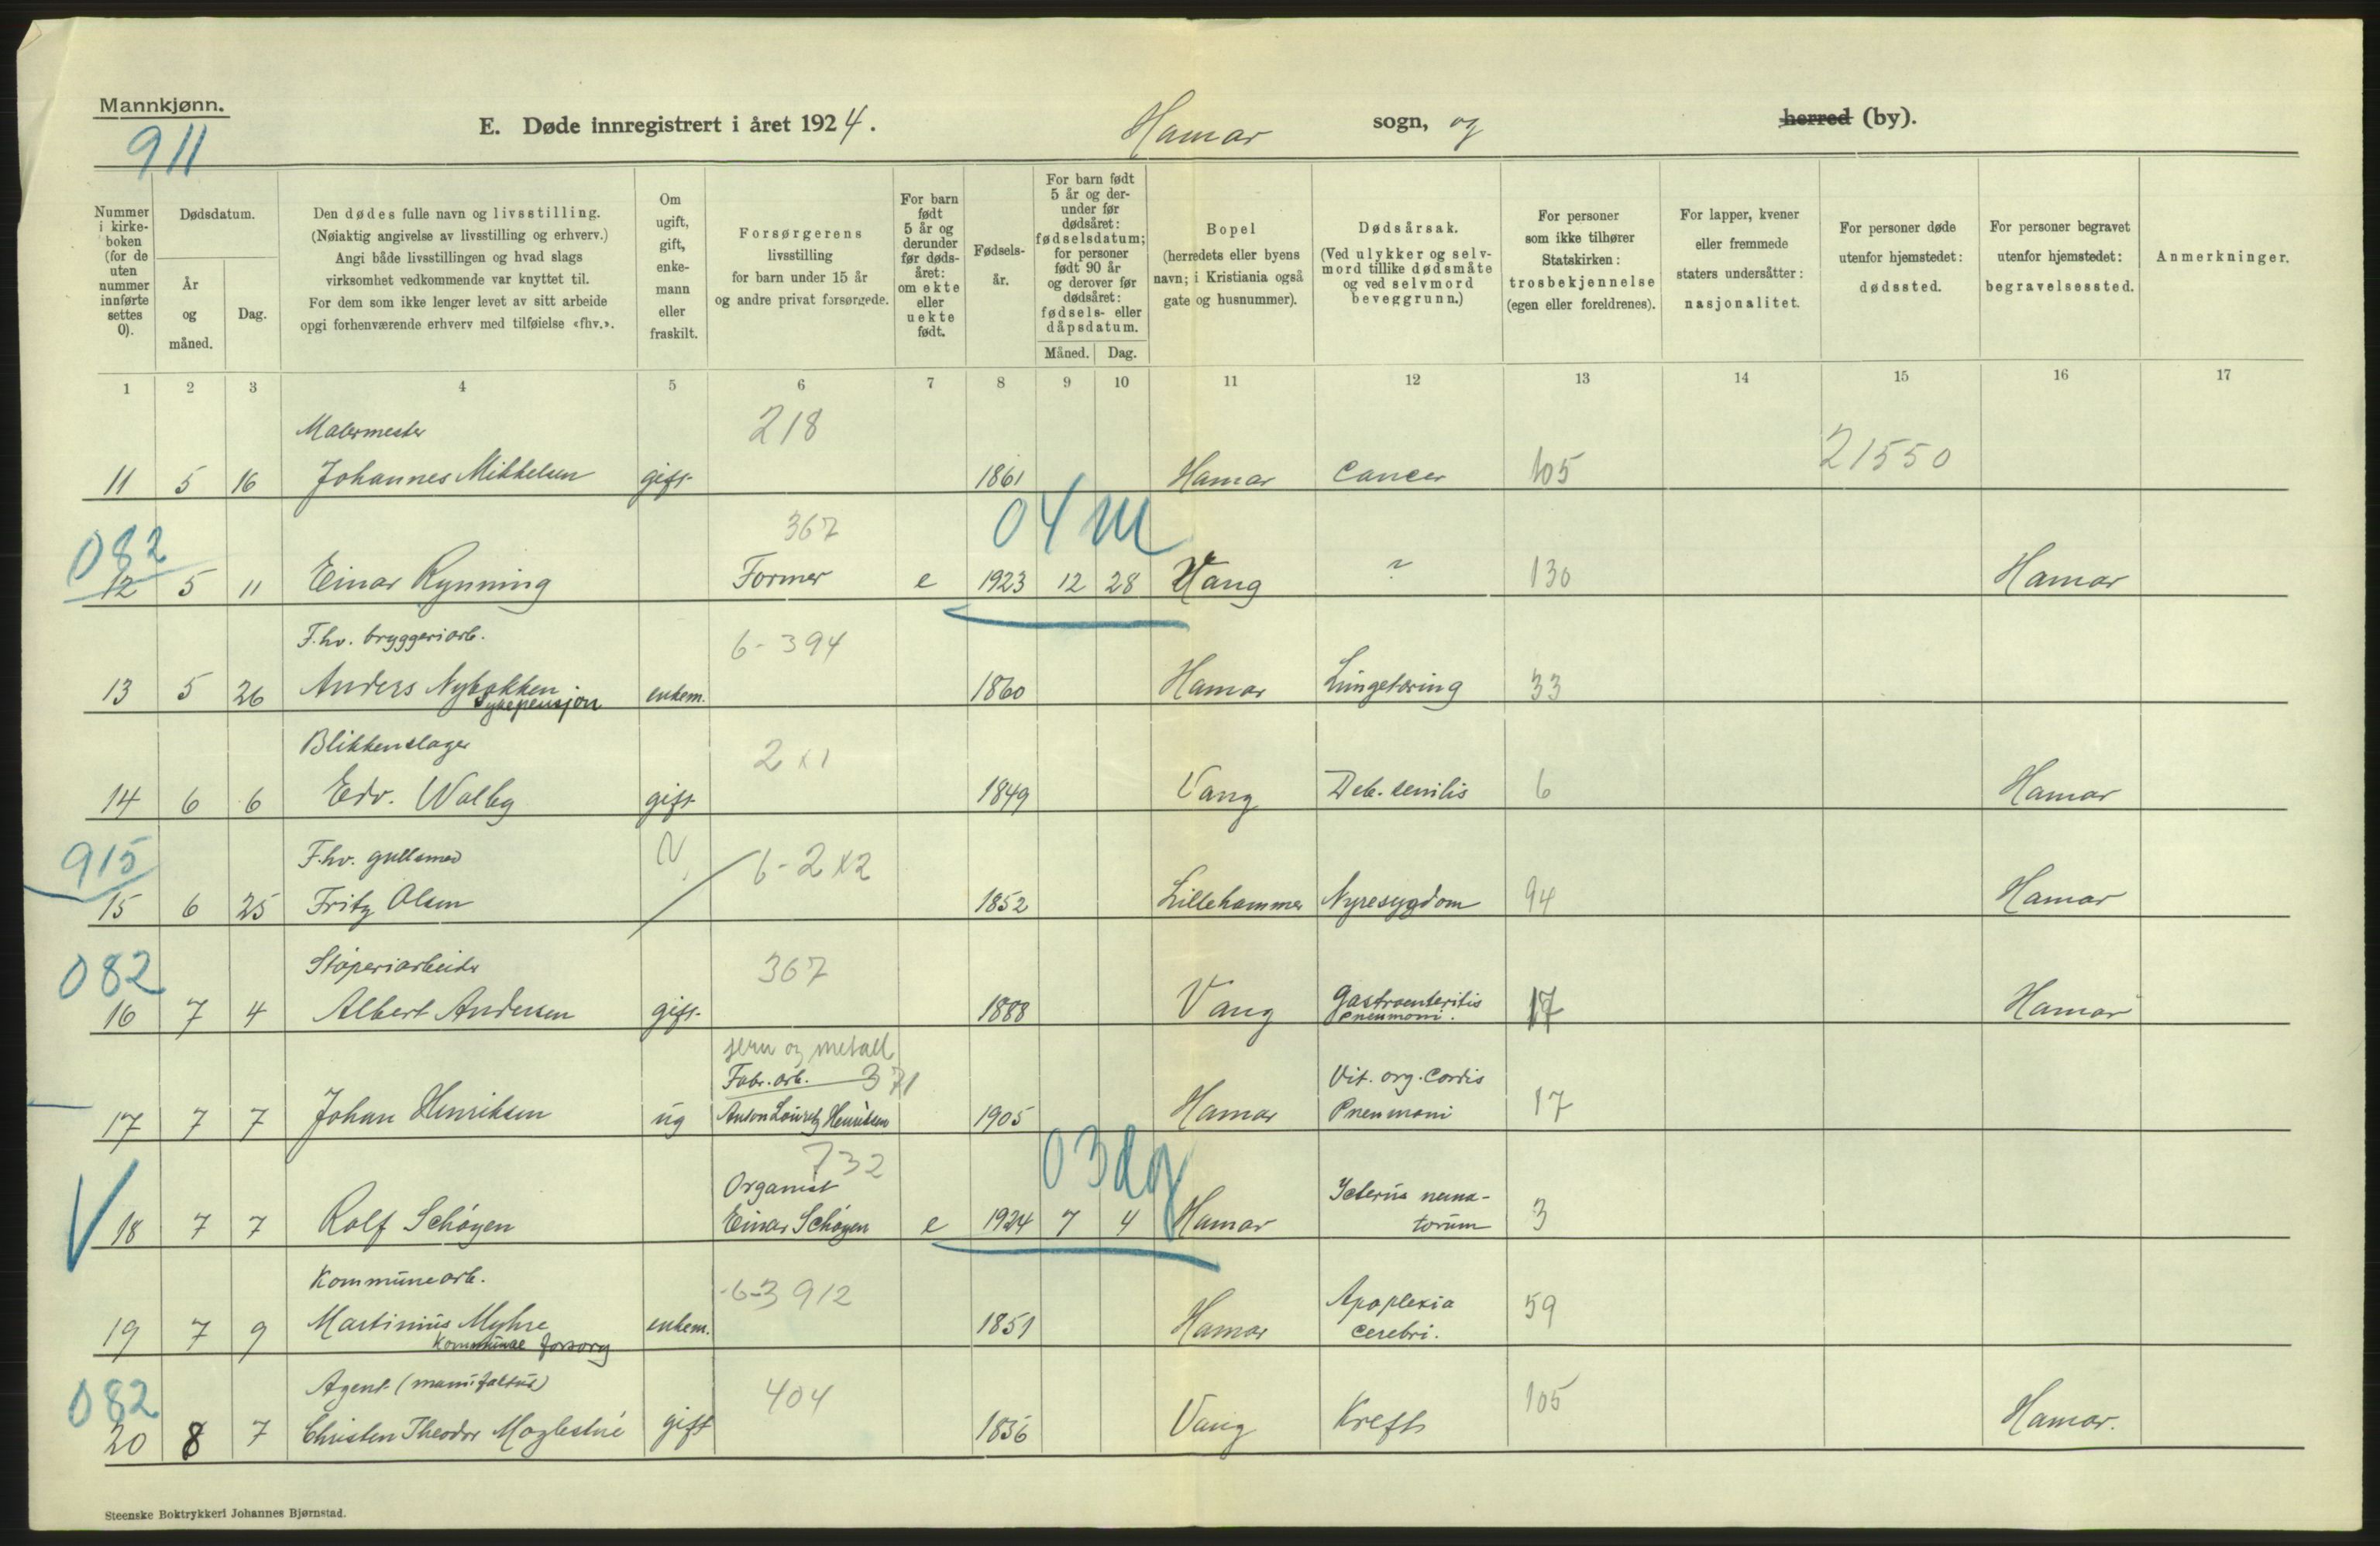 Mannkjønn.
911
E. Døde innregistrert i året 1924.
Hamar sogn, og herred (by).
Nummer i kirke-boken (for de uten nummer innførte settes 0).
Dødsdatum.
År og måned.
Dag.
Den dødes fulle navn og livsstilling.
(Nøiaktig angivelse av livsstilling og erhverv.)
Angi både livsstillingen og hvad slags
virksomhet vedkommende var knyttet til.
For dem som ikke lenger levet av sitt arbeide
opgi forhenværende erhverv med tilføielse «fhv.».
Om ugift, gift, enke-mann eller fraskilt.
Forsørgerens
livsstilling
for barn under 15 år
og andre privat forsørgede.
For barn født 5 år og derunder før døds-året: om ekte eller uekte født.
Fødsels-år.
For barn født 5 år og der-under før dødsåret: fødselsdatum; for personer født 90 år og derover før dødsåret: fødsels- eller dåpsdatum.
Måned. Dag.
Bopel
(herredets eller byens
navn; i Kristiania også
gate og husnummer).
Dødsårsak.
(Ved ulykker og selv-
mord tillike dødsmåte
og ved selvmord
beveggrunn.)
For personer
som ikke tilhører
Statskirken:
trosbekjennelse
(egen eller foreldrenes).
For lapper, kvener
eller fremmede
staters undersåtter:
nasjonalitet.
For personer døde
utenfor hjemstedet:
dødssted.
For personer begravet
utenfor hjemstedet:
begravelsessted.
Anmerkninger.
1 2 3 4 5 6 7 8 9 10 11 12 13 14 15 16 17
Malermester 218 21550
11 5 16 Johannes Mikkelsen gift 1861 Hamar Cancer 105
082 367 04 m
12 5 11 Einar Rynning Former e 1923 12 28 Vang ? 130 Hamar
F.hv. bryggeriarb. 6-394
13 5 26 Anders Nybakken enkem. 1860 Hamar Lungetæring 33
Sykepensjon
Blikkenslager 2x1
14 6 6 Edv. Walby gift 1849 Vang Deb. senilis 6 Hamar
915 F.hv. gullsmed 6-2x2
15 6 25 Fritz Olsen 1852 Lillehammer Nyresygdom 94 Hamar
082 Støperiarbeider 367
16 7 4 Albert Andersen gift 1888 Vang Gastroenteritis Pneumoni. 17 Hamar
jern og metall
Fabr. arb. 371 Vit. org. Cordis
17 7 7 Johan Henriksen ug Anton Louretz Henriksen 1905 Hamar Pneumoni 17
732 03 dg
Organist Icterus neona-
18 7 7 Rolf Schøyen Einar Schøyen e 1924 7 4 Hamar torum 3
Kommunearb. -6-3912 Apoplexia 59
19 7 9 Martinius Myhre enkem. 1851 Hamar cerebri.
Kommunal forsorg
082 Agent (manufaktur) 404 105
20 8 7 Christen Theodor Moglestue gift 1856 Vang Kreft Hamar.
Steenske Boktrykkeri Johannes Bjørnstad.